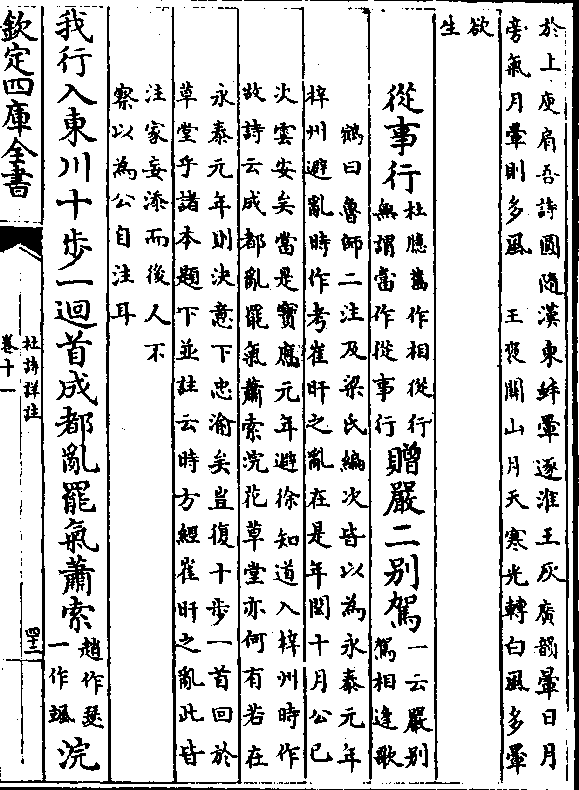 於上庾肩吾詩圓隨漢東蚌暈逐淮王灰廣韻暈日月
旁氣月暈則多風　王褒關山月天寒光轉白風多暈
欲
生
從事行杜臆舊作相從行
無謂當作從事行贈嚴二别駕一云嚴别
駕相逢歌
鶴曰魯師二注及梁氏編次皆以為永泰元年
梓州避亂時作考崔旰之亂在是年閏十月公已
次雲安矣當是寳應元年避徐知道入梓州時作
故詩云成都亂罷氣蕭索浣花草堂亦何有若在
永泰元年則決意下忠渝矣豈復十步一首回於
草堂乎諸本題下並註云時方經崔旰之亂此皆
注家妄添而後人不
察以為公自注耳
我行入東川十步一迴首成都亂罷氣蕭索趙作瑟
一作颯浣
欽定四庫全書
杜詩詳註
卷十一
四十三